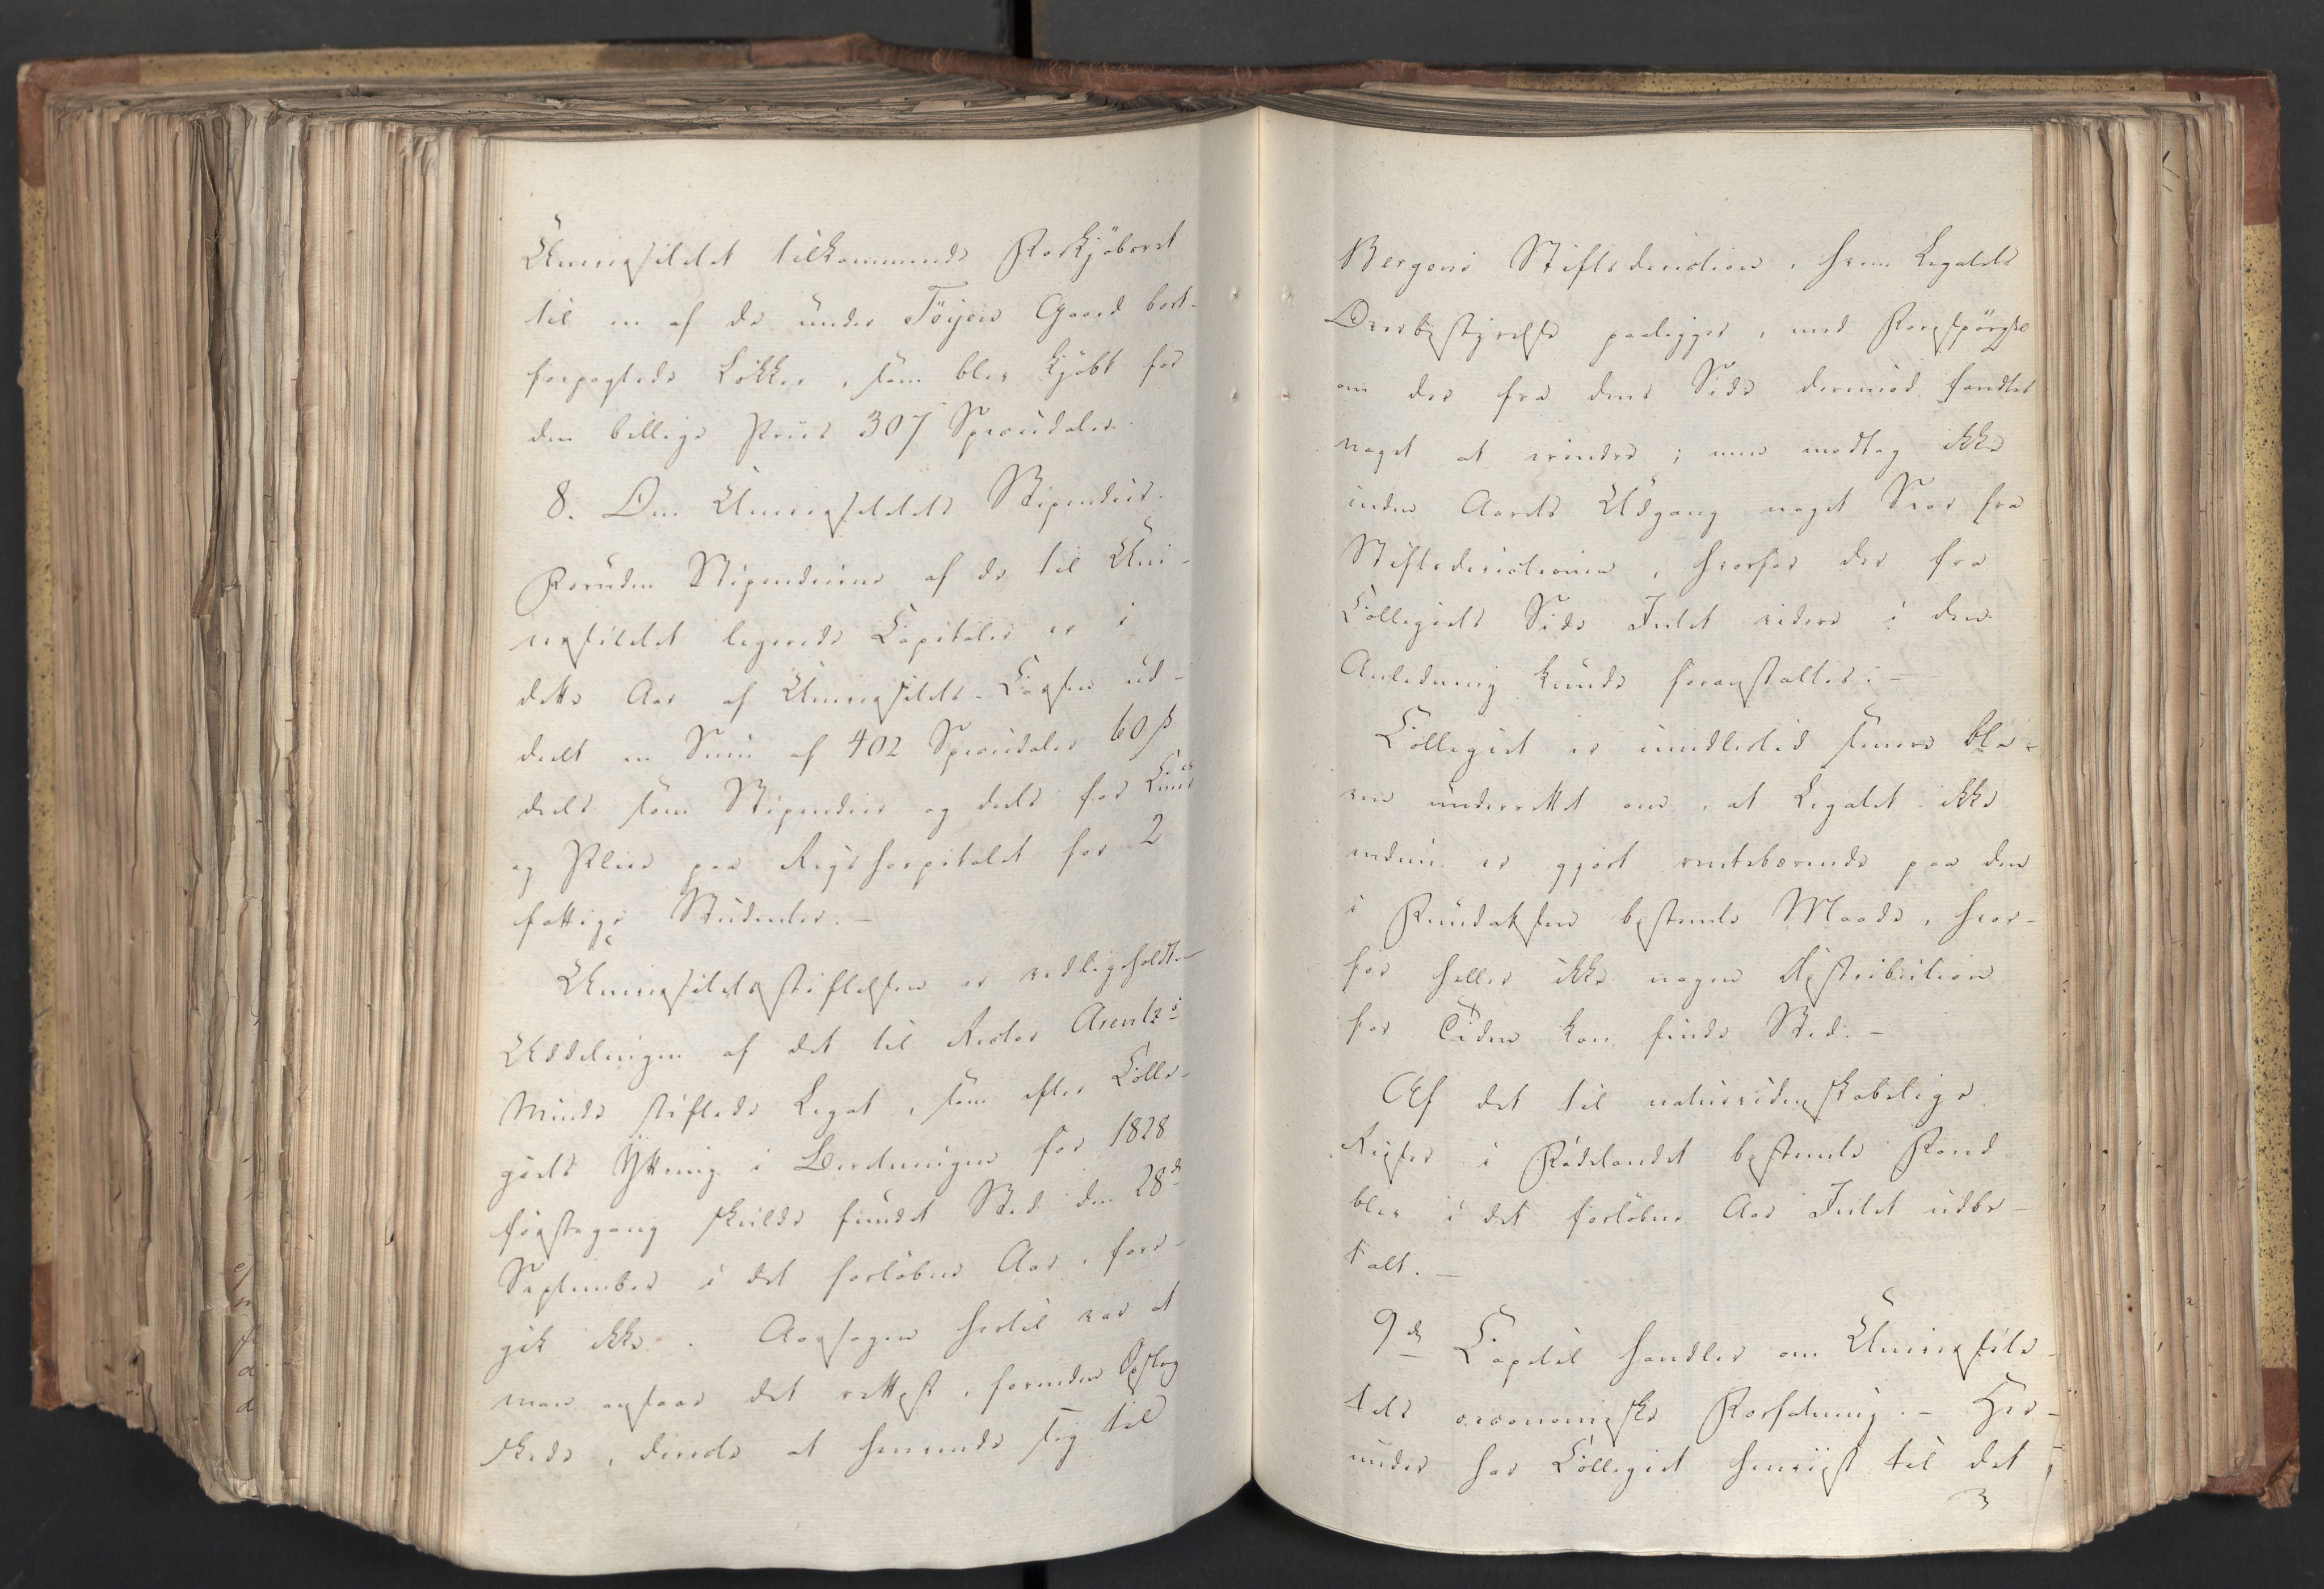 Universitetet tilkommende Forkjöbsret
til en af de under Töyen Gaard bort-
forpagtede Lökker, som blev kjöbt for
den billige Priis 307 Speciedaler.
8. Om Universitetets Stipendier.
Foruden Stipendierne af de til Uni-
versitetet legerede Capitaler er i
dette Aar af Universitets-Cassen ud-
deelt en Sum af 402 Speciedaler 60 ß
deels som Stipendier og deels for Cuur
og Pleie paa Rigshospitalet for 2
fattige Studenter. -
Universitetsstiftelsen er vedligeholdt. -
Uddelingen af det til Rector Arentz's
Minde stiftede Legat, som efter Colle-
giets Yttring i Beretningen for 1828
förstegang skulde fundet Sted den 28de
September i det forlöbne Aar, fore-
gik ikke. Aarsagen hertil var at
man ansaae det rettest, forinden Opslag
skede, derom at henvende sig til
Bergens Stiftsdirection, hvem Legatets
Overbestyrelse paaligger, med Forespörgsel
om der fra dens Side derimod fandtes
noget at erindre; men modtog ikke
inden Aarets Udgang noget Svar fra
Stiftsdirectionen, hvorfor der fra
Collegiets Side Intet videre i den
Anledning kunde foranstaltes. -
Collegiet er imidlertid senere ble-
ven underrettet om, at Legatet ikke
endnu er gjort rentebærende paa den
i Fundatsen bestemte Maade, hvor-
for heller ikke nogen Distribution
for Tiden kan finde Sted. -
Af det til naturvidenskabelige
Reiser i Födelandet bestemte Fond
blev i det forlöbne Aar Intet udbe-
talt. -
9de Capitel handler om Universite-
tets oeconomiske Forfatning. - Her-
under har Collegiet henviist til det